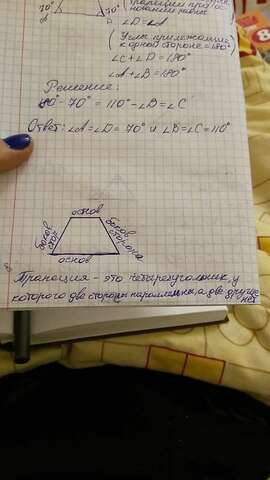 70° 70°
трапеции при ос-
новании равны
∠D = ∠A
(Углы прилежающие
к одной стороне = 180°)
∠C + ∠D = 180°
∠A + ∠B = 180°
Решение:
180° - 70° = 110° - ∠B = ∠C
Ответ: ∠A = ∠D = 70° и ∠B = ∠C = 110°
основ
боков
стор
боков
сторона
основ
Трапеция - это четырехугольник, у
которого две стороны параллельны, а две другие
нет